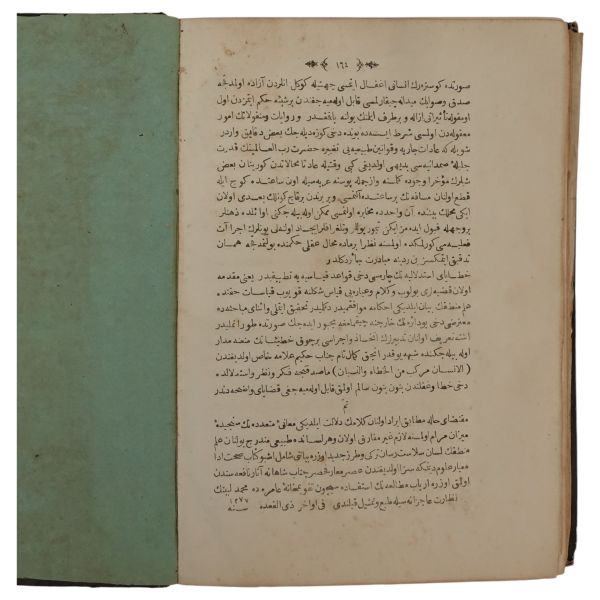 ١٦٤
صورتده كوستره‌رك انسانى اغفال ايتمسى جهتيله كوكل انلردن آزاده اولدقجه
صدق وصوابك ميدانه چيقارلمسى قابل اوله‌ميه‌جغندن برشيئه حكم ايتمزدن اول
تأثيراتى ازاله و برطرف ايلمك بولنه باقمقدر وروايات ومنقولاتك امور
معقوله‌دن اولمسى شرط ايسه‌ده بونده دخى كوزه‌ديله‌جك بعض دقايق واردر
شويله كه عادات جاريه وقوانين طبيعيه‌يى تغييره حضرت رب العالمينك قدرت
جليلهٔ صمدانيه‌سى بديهى اولديغى كبى وقتيله عادتا محالاتدن كورينان بعض
شيلرك مؤخرا وجوده كلمسنه وازجمله پوسته عربه‌سيله اون ساعتده كوج ايله
قطع اولنان مسافه‌نك برساعتده آلنمسى وبربرندن برقاچ كونلك بعدى اولان
ايكى محلك بيننده آن واحدده مخابره اولنمسى ممكن اوله‌بيله‌جكنى اوائلده ذهنلر
بروجهله قبول ايده‌مزايكن تيمور يوللر وتلغرافلر ايجاد اولنه‌لى بونلرك اجرا آت
فعليه‌سى كورلمكده اولمسنه نظرا برماده محال عقلى حكمنده بولنمدقجه همان
تدقيق ايتمكسزين ردينه مبادرت جائز دكلدر
خطاياى استدلاليه‌نك چاره‌سى دخى قواعد قياسيه‌يه تطبيقيدر يعنى مقدمه
اولان قضيه‌لرى بولوب وكلام وعباره‌يى قياس شكلنه قويوب قياسات حقنده
علم منطقك بيان ايلديكى احكامه موافقميدر دكلميدر تحقيق ايتملى واثناى مباحثه‌ده
معترضى دخى بودائره‌نك خارجنه چيقمامغه مجبور ايده‌جك صورتده طورانمليدر
اشته تعريف اولنان تدبيرلرك اتخاذ واجراسى برچوق خطيئاتك منعنه مدار
اوله‌بيله‌جكنده شبهه يوقدر انجق كمال تام جناب حكيم علامه خاص اولديغندن
(الانسان مركب من الخطاء والنسيان) ماصدقنجه فكر ونظر واستدلالده
دخى خطا وغفلتدن بتون بتون سالم اولمق قابل اوله‌ميه‌جغى قضاياى واضحه‌دندر
تم
مقتضاى حاله مطابق ايراد اولنان كلامك دلالت ايلديكى معانئ متعدده‌نك سنجيدهٔ
ميزان مرام اولمسنه لازم غير مفارق اولان وهر لسانده طبيعى مندرج بولنان علم
منطقك لسان سلاست رسان تركى وطرز جديد اوزره بياننى شامل اشبو كتاب صحت ادا
معيار علوم دينمكه سزا اولديغندن عصر معارف حصر جناب شاهانه آثار نافعه‌سندن
اولمق اوزره ارباب مطالعه‌نك استفاده‌سيچون تقويمخانهٔ عامره‌ده محمد لبيبك
نظارت عاجزانه‌سيله طبع وتمثيل قيلندى فى اواخر ذى القعده سنه ١٢٧٧